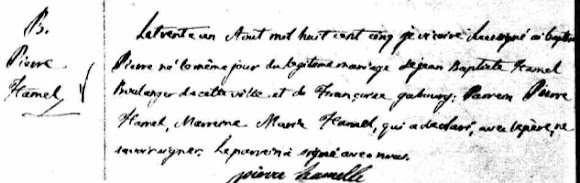 B.
Pierre
Hamel
Le trente un Aout mil huit cent cinq je vicaire soussigné ai baptisé
Pierre né le même jour du légitime mariage de jean Baptiste Hamel
Boulanger de cette ville et de Françoise gaboury; Parrein Pierre
Hamel, Marreine Marie Hamel, qui a declaré, avec le père, ne
savoir signer. Le parrein à signé avec nous.
pierre hamelle